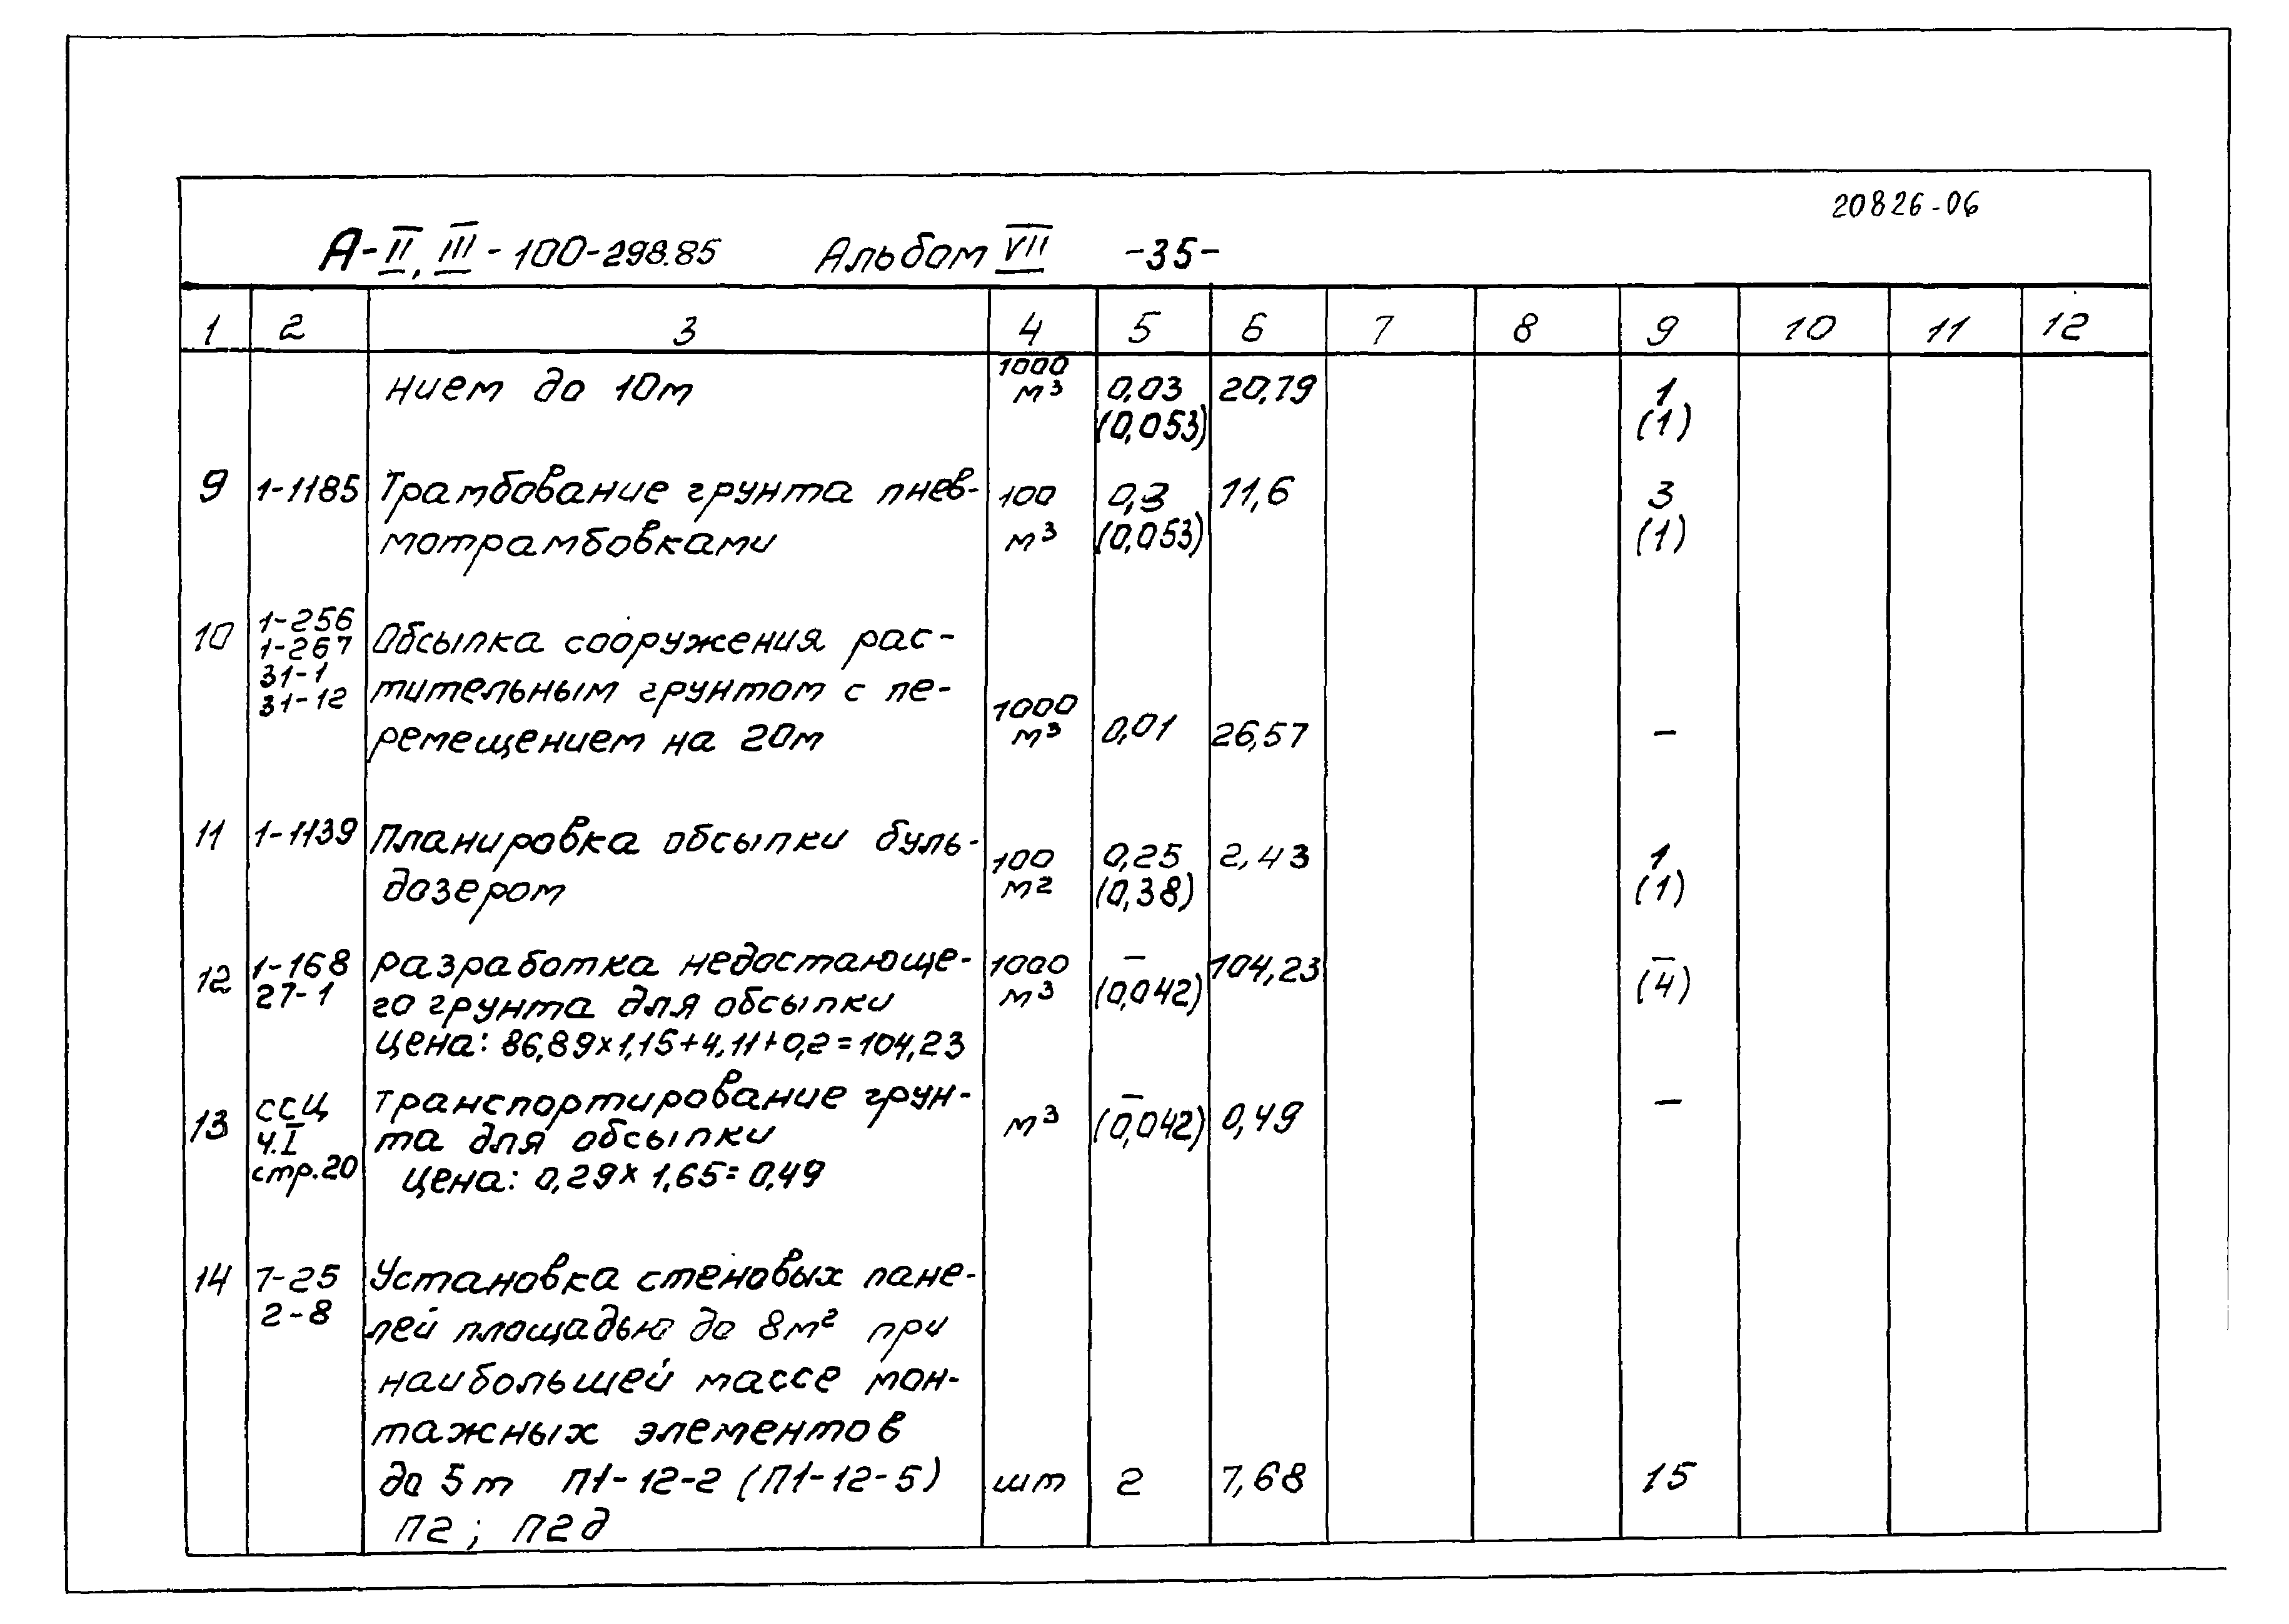 20826-06
А-II, III-100-298.85 Альбом VII -35-
1 2 3 4 5 6 7 8 9 10 11 12
нием до 10т 1000 м³ 0,03 20,79 1
(0,053) (1)
9 1-1185 Трамбование грунта пнев- 100 0,3 11,6 3
мотрамбовками м³ (0,053) (1)
10 1-256
1-267 Обсыпка сооружения рас-
31-1
31-12 тительным грунтом с пе-
ремещением на 20м 1000 м³ 0,01 26,57 —
11 1-1139 Планировка обсыпки буль- 100 0,25 2,43 1
дозером м² (0,38) (1)
12 1-168 разработка недостающе- 1000 — 104,23 —
27-1 го грунта для обсыпки м³ (0,042) (4)
цена: 86,89×1,15+4,11+0,2=104,23
13 ССЦ транспортирование грун- м³ — 0,49 —
ч.I та для обсыпки (0,042)
стр.20 цена: 0,29×1,65=0,49
14 7-25 Установка стеновых пане-
2-8 лей площадью до 8м² при
наибольшей массе мон-
тажных элементов
до 5т П1-12-2 (П1-12-5) шт 2 7,68 15
П2; П2д